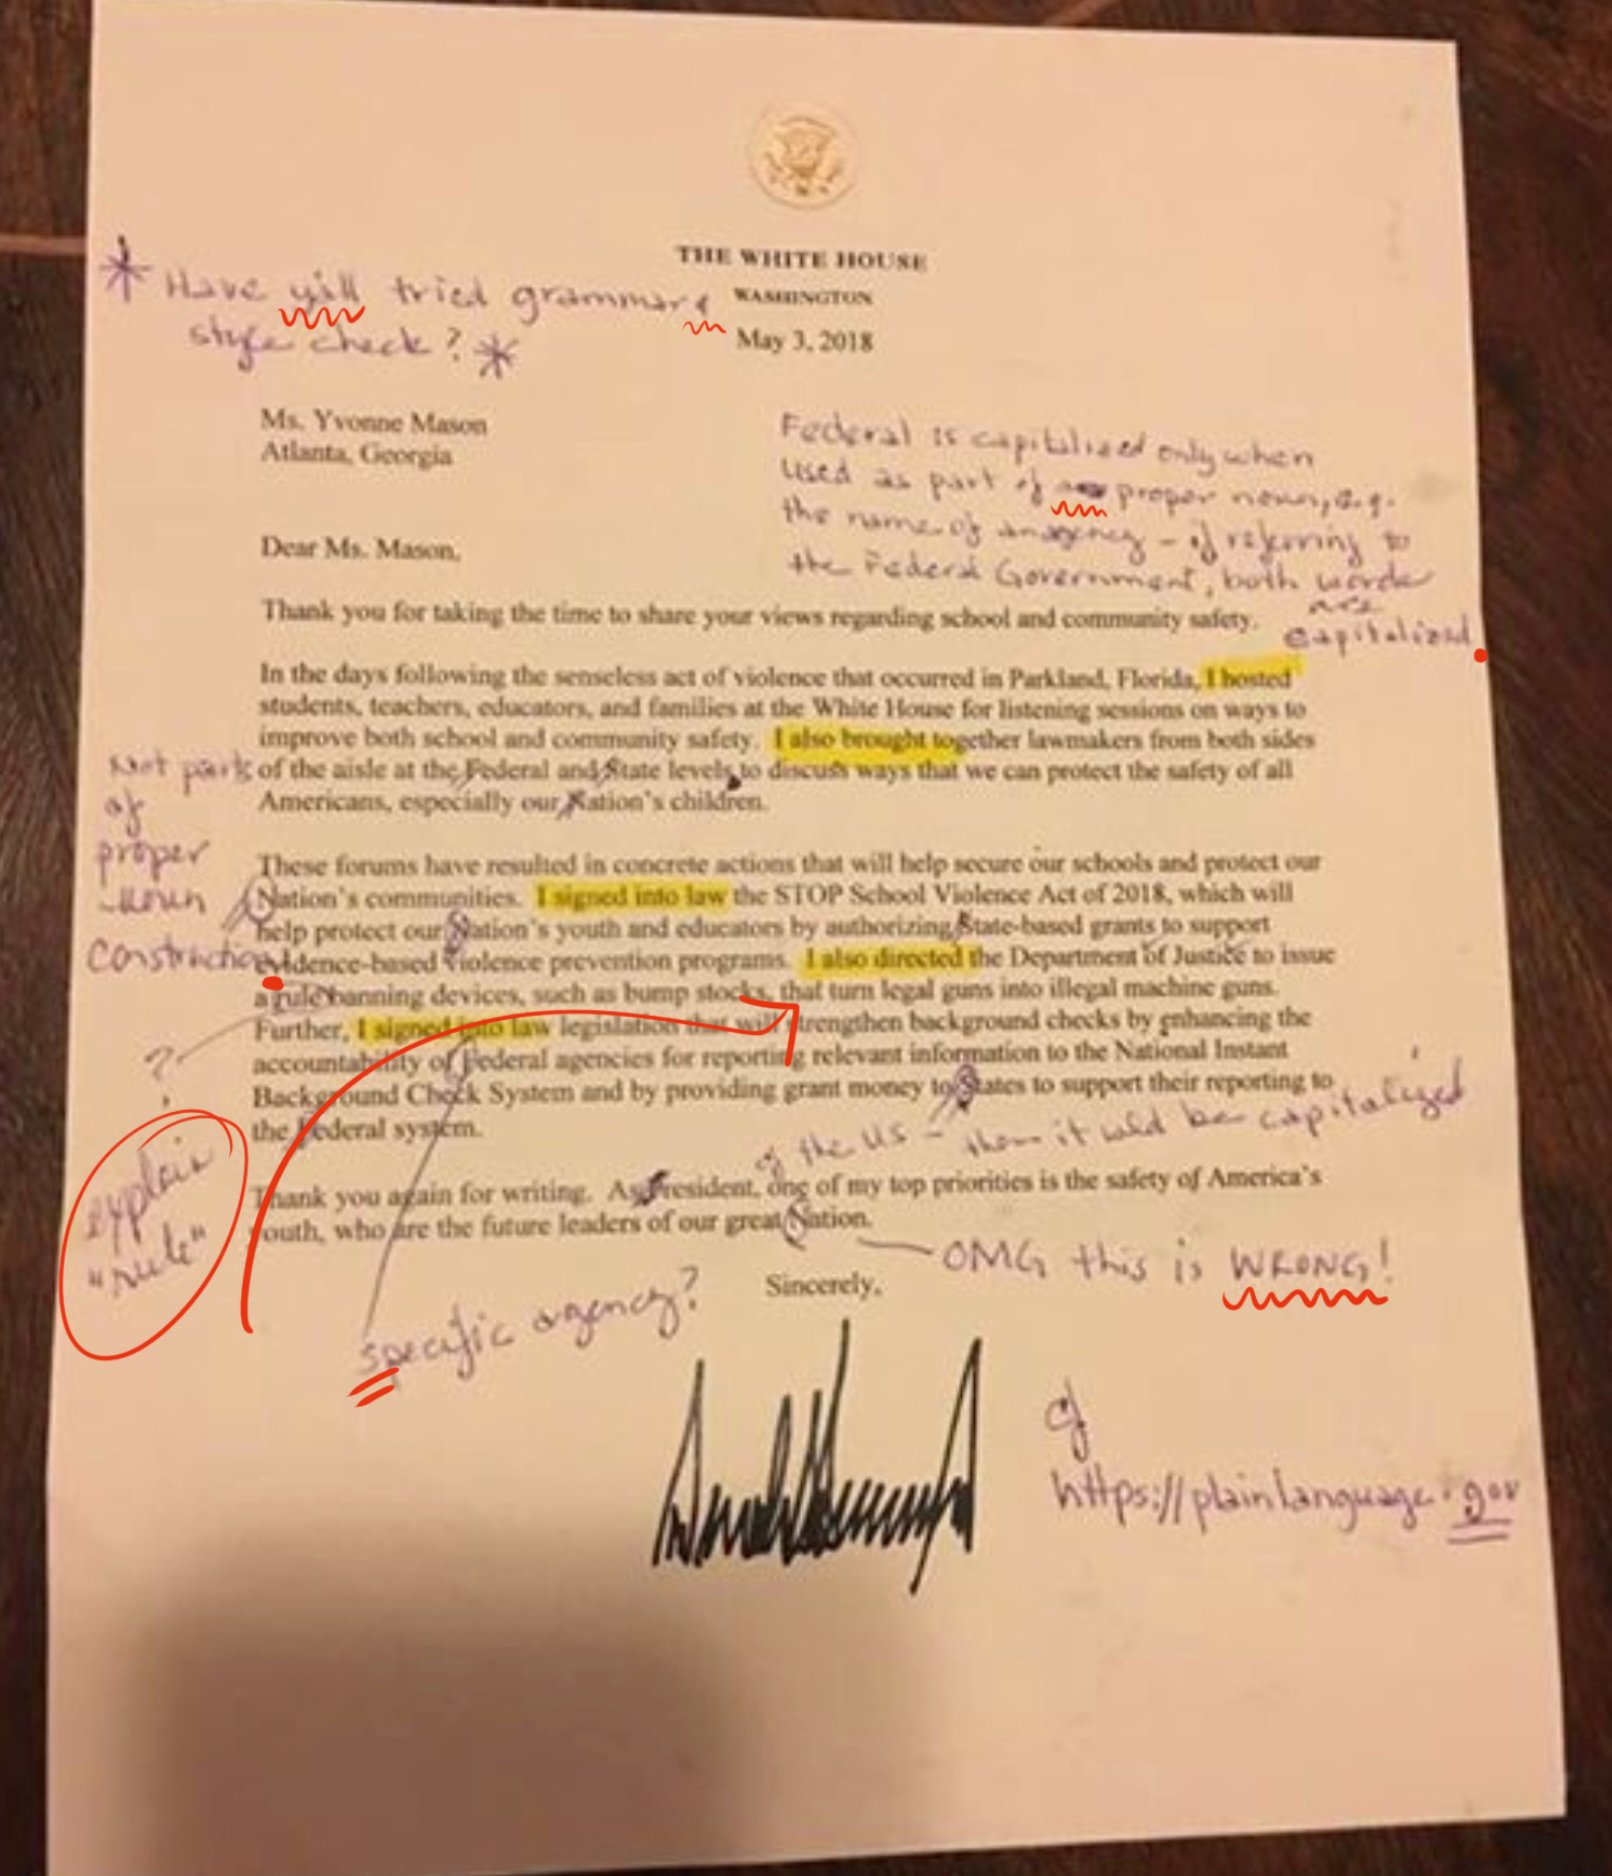 THE WHITE HOUSE
WASHINGTON
May 3, 2018
* Have y'all tried grammar &
style check? *
Ms. Yvonne Mason
Atlanta, Georgia
Federal is capitalized only when
used as part of proper noun, e.g.
the name of an agency - if referring to
the Federal Government, both words
are
capitalized.
Dear Ms. Mason,
Thank you for taking the time to share your views regarding school and community safety.
In the days following the senseless act of violence that occurred in Parkland, Florida, I hosted
students, teachers, educators, and families at the White House for listening sessions on ways to
improve both school and community safety. I also brought together lawmakers from both sides
of the aisle at the Federal and State levels to discuss ways that we can protect the safety of all
Americans, especially our Nation's children.
Not parts
of
proper
-noun
construction
These forums have resulted in concrete actions that will help secure our schools and protect our
Nation's communities. I signed into law the STOP School Violence Act of 2018, which will
help protect our Nation's youth and educators by authorizing State-based grants to support
evidence-based violence prevention programs. I also directed the Department of Justice to issue
a rule banning devices, such as bump stocks, that turn legal guns into illegal machine guns.
Further, I signed into law legislation that will strengthen background checks by enhancing the
accountability of Federal agencies for reporting relevant information to the National Instant
Background Check System and by providing grant money to States to support their reporting to
the Federal system.
?
explain
"rule"
of the US - then it would be capitalized
Thank you again for writing. As President, one of my top priorities is the safety of America's
youth, who are the future leaders of our great Nation.
OMG this is WRONG!
Sincerely,
specific agency?
cf
https://plainlanguage.gov